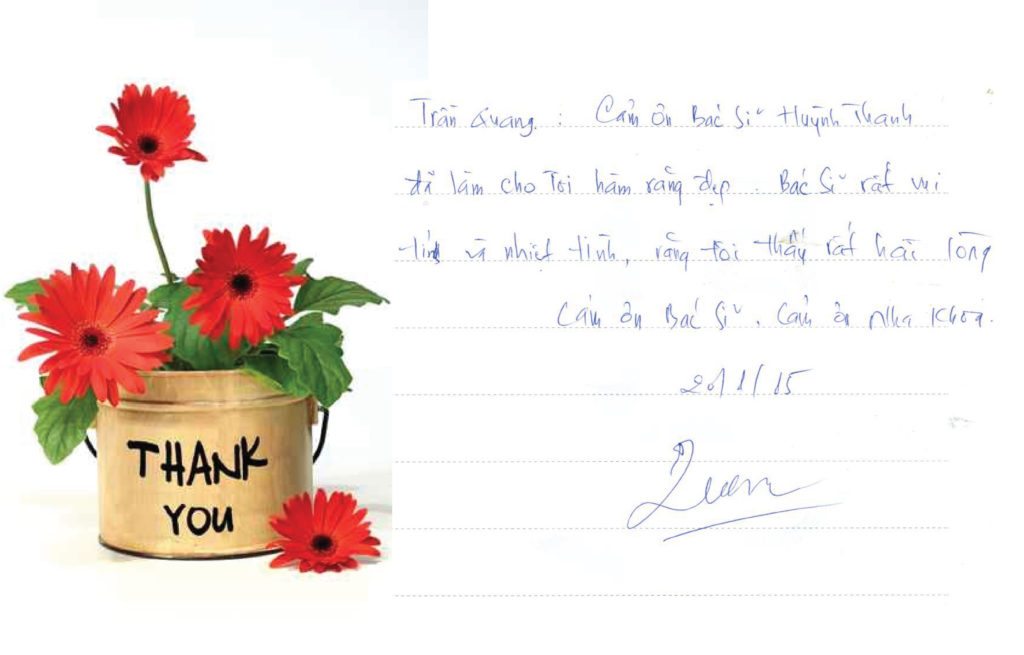 THANK
YOU
Trần Quang : Cảm ơn Bác Sĩ Huỳnh Thanh
đã làm cho Tôi hàm răng đẹp. Bác Sĩ rất vui
tính và nhiệt tình, răng tôi thấy rất hài lòng
Cảm ơn Bác Sĩ. Cảm ơn Nha Khoa.
20/1/15